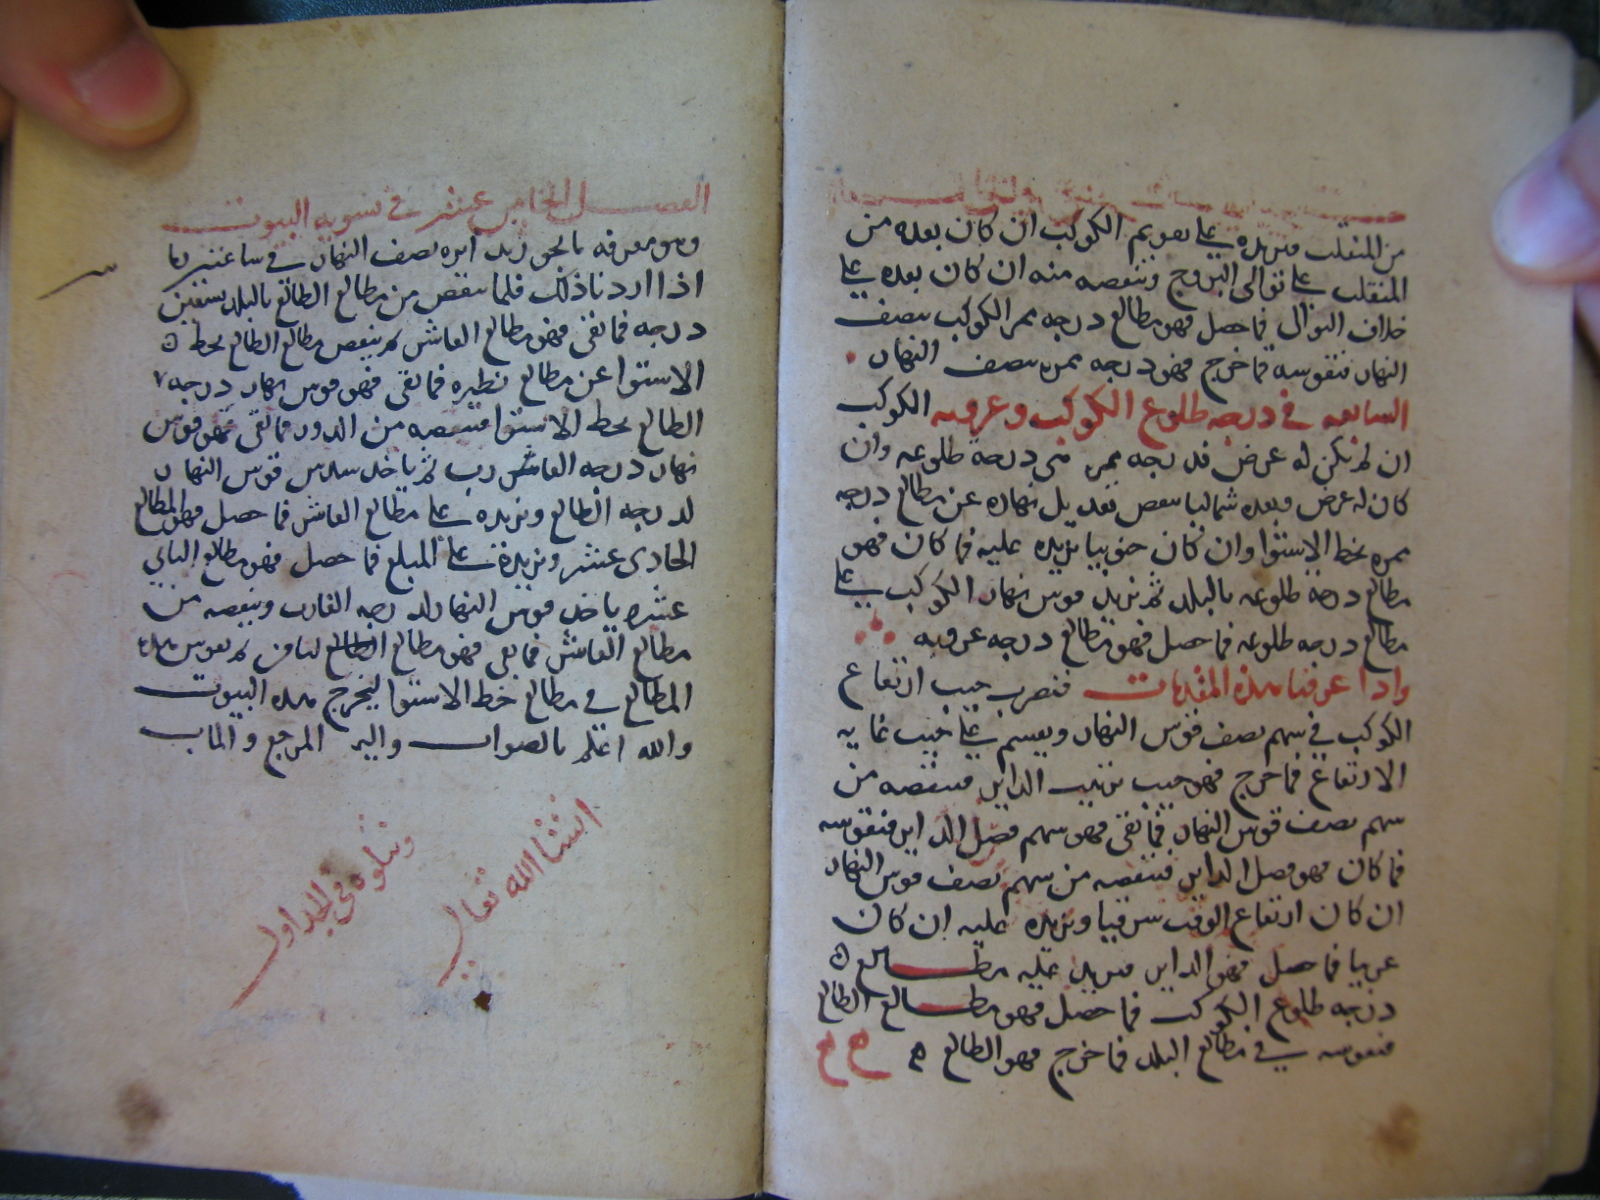 من المنقلب ونزيده على تقويم الكوكب ان كان بعده من
المنقلب على توالى البروج وننقصه منه ان كان بعده على
خلاف التوالى فما حصل فهو مطالع درجه ممر الكوكب بنصف
النهار فنقوسه فما خرج فهو درجه ممره بنصف النهار
السابعه في درجه طلوع الكوكب وغروبه الكوكب
ان لم يكن له عرض فدرجه ممره هي درجة طلوعه وان
كان له عرض وبعده شماليا ننقص تعديل نهاره عن مطالع درجه
ممره بخط الاستوا وان كان جنوبيا نزيده عليه فما كان فهو
مطالع درجه طلوعه بالبلد ثم نزيد قوس نهار الكوكب على
مطالع درجه طلوعه فما حصل فهو مطالع درجه غروبه
واذا عرفنا هذه المقدمات فنضرب جيب ارتفاع
الكوكب في سهم نصف قوس النهار ونقسم على جيب غايه
الارتفاع فما خرج فهو جيب ترتيب الداير فننقصه من
سهم نصف قوس النهار فما بقى فهو سهم فضل الداير فنقوسه
فما كان فهو فضل الداير فننقصه من سهم نصف قوس النهار
ان كان ارتفاع الوقت شرقيا ونزيده عليه ان كان
غربيا فما حصل فهو الداير فنزيد عليه مطالع
درجه طلوع الكوكب فما حصل فهو مطالع الطالع
فنقوسه في مطالع البلد فما خرج فهو الطالع
الفصل الخامس عشر في تسويه البيوت
وهو معرفه ما نحن نريد نصف النهار في
اذا اردنا ذلك فلما ننقص من مطالع الطالع بالبلد تسعين
درجه فما بقى فهو مطالع العاشر ثم ننقص مطالع الطالع بخط
الاستوا عن مطالع نظيره فما بقى فهو قوس نهار درجه
الطالع بخط الاستوا فننقصه من الدور فما بقى فهو قوس
نهار درجه العاشر ثم ياخذ سدس قوس النهار
لدرجه الطالع ونزيده على مطالع العاشر فما حصل فهو المطالع
الحادى عشر ونزيده على المبلغ فما حصل فهو مطالع الثاني
عشر ياخذ قوس النهار لدرجه الغارب وننقصه من
مطالع العاشر فما بقى فهو مطالع الطالع ثم نقوس هذه
المطالع في مطالع خط الاستوا ليخرج هذه البيوت
والله اعلم بالصواب واليه المرجع والماب
ونتلوه في الجداول
انشا الله تعالى